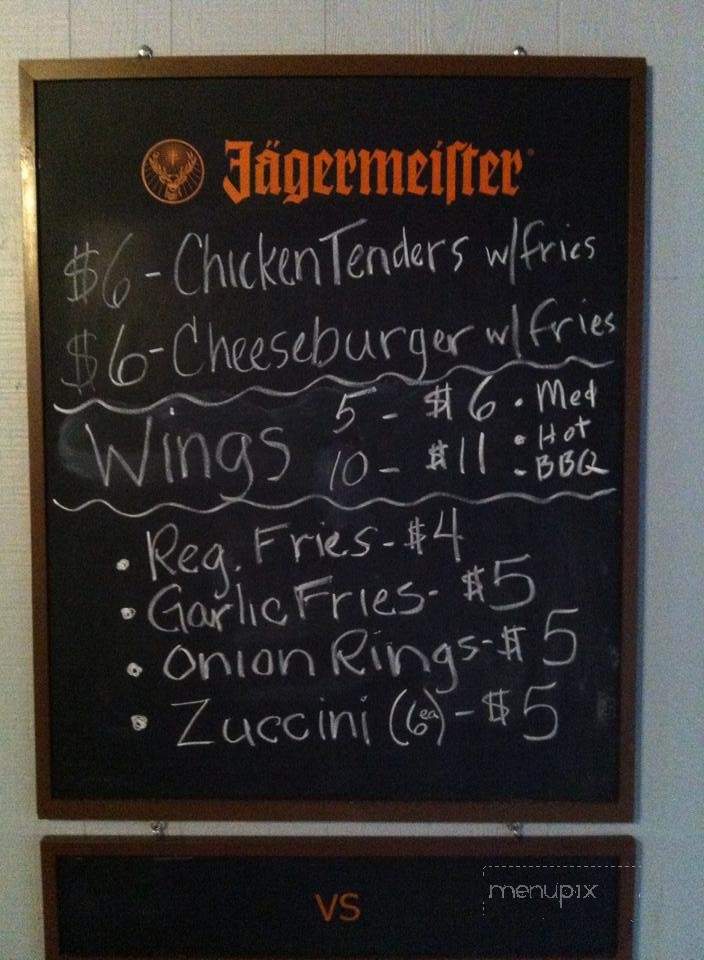 Jägermeister
$6 - Chicken Tenders w/fries
$6 - Cheeseburger w/fries
Wings 5 - $6 • Med
• Hot
10 - $11 - BBQ
• Reg. Fries - $4
• Garlic Fries - $5
• Onion Rings - $5
• Zuccini (6ea) - $5
VS
menupix